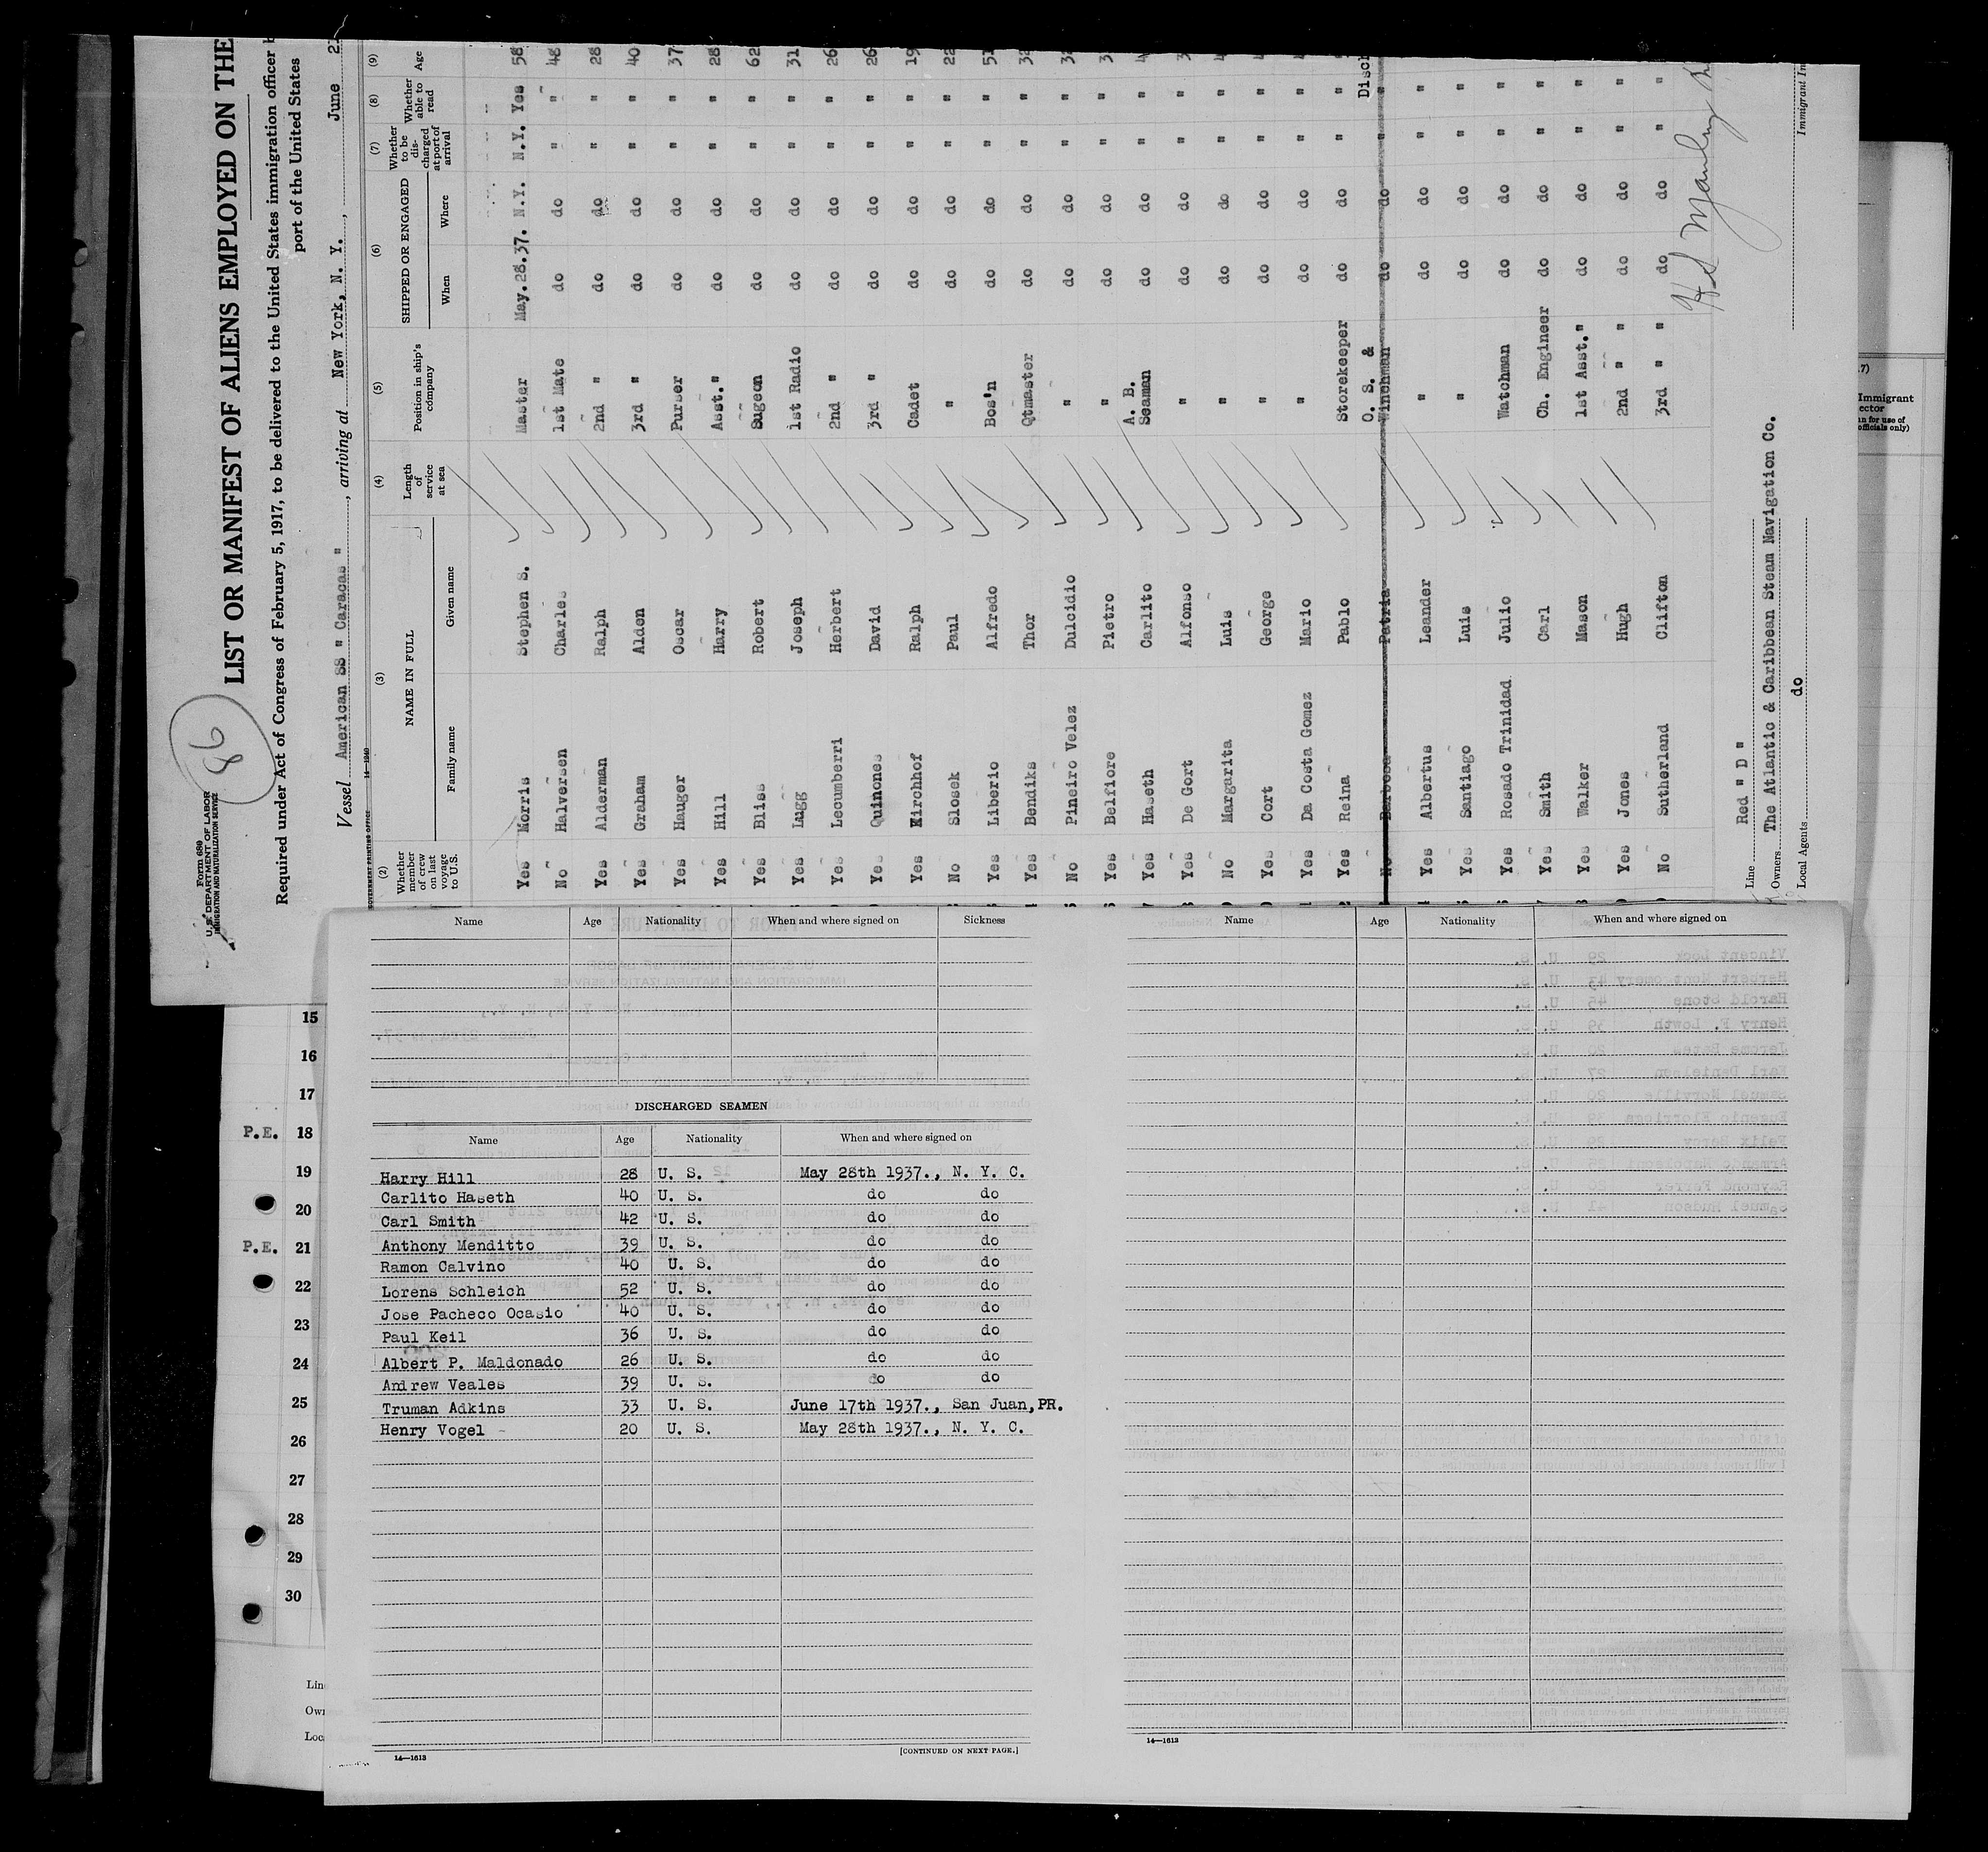 Form 680
U. S. DEPARTMENT OF LABOR
IMMIGRATION AND NATURALIZATION SERVICE
86
LIST OR MANIFEST OF ALIENS EMPLOYED ON THE
Required under Act of Congress of February 5, 1917, to be delivered to the United States immigration officer
port of the United States
Vessel American SS " Caracas ", arriving at New York, N. Y., June
(2) (3) (4) (5) (6) (7) (8) (9)
Whether member of crew on last voyage to U.S. NAME IN FULL Family name Given name Length of service at sea Position in ship's company SHIPPED OR ENGAGED When Where Whether to be discharged at port of arrival Whether able to read Age
Yes Morris Stephen S. Master May.28.37. N.Y. N.Y. Yes 58
No Halversen Charles 1st Mate do do " " 48
Yes Alderman Ralph 2nd " do do " " 28
Yes Graham Alden 3rd " do do " " 40
Yes Hauger Oscar Purser do do " " 37
Yes Hill Harry Asst. " do do " " 28
Yes Bliss Robert Sugeon do do " " 62
Yes Lugg Joseph 1st Radio do do " " 31
Yes Lecumberri Herbert 2nd " do do " " 26
Yes Quinones David 3rd " do do " " 26
Yes Kirchhof Ralph Cadet do do " " 19
No Slosek Paul " do do " " 22
Yes Liberio Alfredo Bos'n do do " " 51
Yes Bendiks Thor Qtmaster do do " "
No Pineiro Velez Dulcidio " do do " "
Yes Belfiore Pietro " do do " "
Yes Haseth Carlito A. B. Seaman do do " "
Yes De Gort Alfonso " do do " "
No Margarita Luis " do do " "
Yes Cort George " do do " "
Yes Da Costa Gomez Mario " do do " "
Yes Reina Pablo Storekeeper do do " "
No Barbosa Patria O. S. & Winchman do do " " Disch
Yes Albertus Leander " do do " "
Yes Santiago Luis " do do " "
Yes Rosado Trinidad Julio Watchman do do " "
Yes Smith Carl Ch. Engineer do do " "
Yes Walker Mason 1st Asst. " do do " "
Yes Jones Hugh 2nd " " do do " "
No Sutherland Clifton 3rd " " do do " "
Line Red " D "
Owners The Atlantic & Caribbean Steam Navigation Co.
Local Agents do
Immigrant
officials only)
15
16
17
P.E. 18
19
20
P.E. 21
22
23
24
25
26
27
28
29
30
Name Age Nationality When and where signed on Sickness
DISCHARGED SEAMEN
Name Age Nationality When and where signed on
Harry Hill 28 U. S. May 28th 1937., N. Y. C.
Carlito Haseth 40 U. S. do do
Carl Smith 42 U. S. do do
Anthony Menditto 39 U. S. do do
Ramon Calvino 40 U. S. do do
Lorens Schleich 52 U. S. do do
Jose Pacheco Ocasio 40 U. S. do do
Paul Keil 36 U. S. do do
Albert P. Maldonado 26 U. S. do do
Andrew Veales 39 U. S. do do
Truman Adkins 33 U. S. June 17th 1937., San Juan,PR.
Henry Vogel 20 U. S. May 28th 1937., N. Y. C.
14—1613
[CONTINUED ON NEXT PAGE.]
Name Age Nationality When and where signed on
14—1613